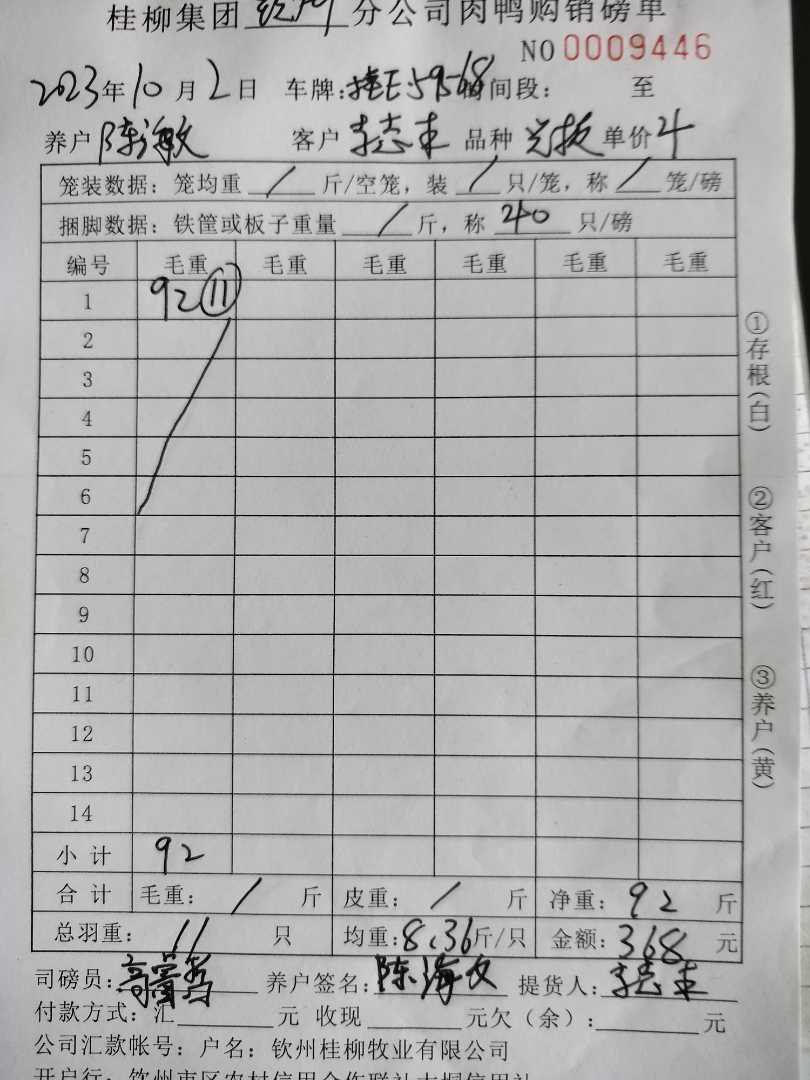 桂柳集团 钦州 分公司肉鸭购销磅单
NO 0009446
2023年10月2日 车牌:桂E59568 时间段: 至
养户 陈海敏 客户 李志丰 品种 单价 4
笼装数据: 笼均重 / 斤/空笼, 装 / 只/笼, 称 / 笼/磅
捆脚数据: 铁筐或板子重量 / 斤, 称 40 只/磅
编号 毛重 毛重 毛重 毛重 毛重 毛重
1 92 ⑪
2
3
4
5
6
7
8
9
10
11
12
13
14
小计 92
合计 毛重: / 斤 皮重: / 斤 净重: 92 斤
总羽重: 11 只 均重: 8.36斤/只 金额: 368 元
司磅员: 养户签名: 陈海文 提货人: 李志丰
付款方式: 汇 元 收现 元欠(余): 元
公司汇款帐号: 户名: 钦州桂柳牧业有限公司
开户行: 钦州市区农村信用合作联社大垌信用社
①存根(白)
②客户(红)
③养户(黄)